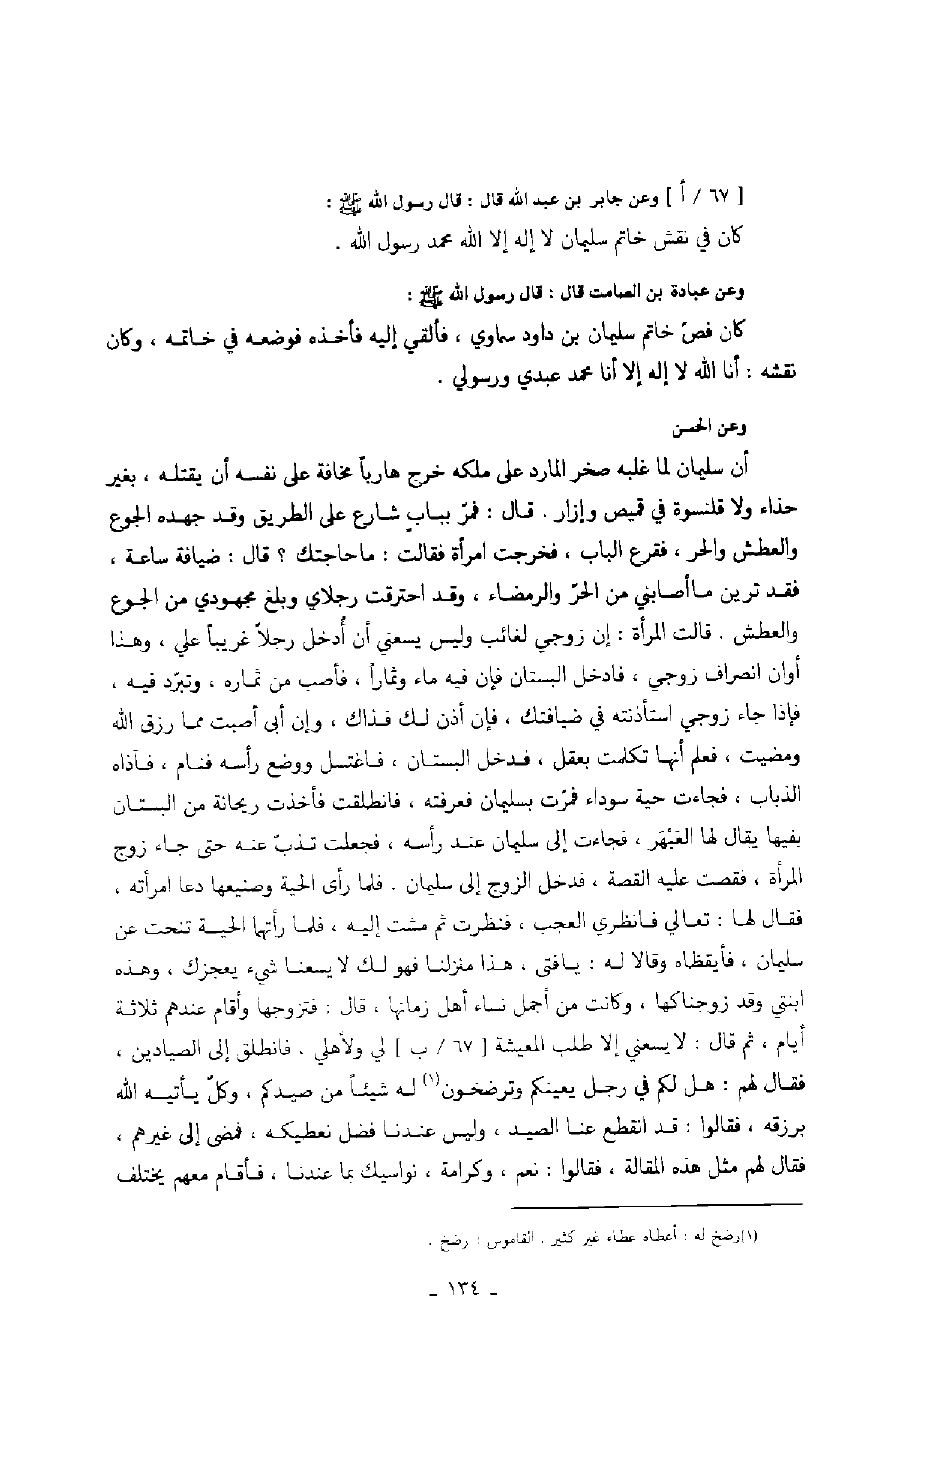 [ ٦٧ / أ ] وعن جابر بن عبد الله قال : قال رسول الله ﷺ :
كان في نقش خاتم سليمان لا إله إلا الله محمد رسول الله .
وعن عبادة بن الصامت قال : قال رسول الله ﷺ :
كان فصّ خاتم سليمان بن داود سماوي ، فألقي إليه فأخذه فوضعه في خاتمه ، وكان
نقشه : أنا الله لا إله إلا أنا محمد عبدي ورسولي .
وعن الحسن
أن سليمان لما غلبه صخر المارد على ملكه خرج هارباً مخافة على نفسه أن يقتله ، بغير
حذاء ولا قلنسوة في قميص وإزار . قال : فمرّ ببابٍ شارع على الطريق وقد جهده الجوع
والعطش والحر ، فقرع الباب ، فخرجت امرأة فقالت : ماحاجتك ؟ قال : ضيافة ساعة ،
فقد ترين ماأصابني من الحرّ والرمضاء ، وقد احترقت رجلاي وبلغ مجهودي من الجوع
والعطش . قالت المرأة : إن زوجي لغائب وليس يسعني أن أُدخل رجلاً غريباً علي ، وهذا
أوان انصراف زوجي ، فادخل البستان فإن فيه ماء وثماراً ، فأصب من ثماره ، وتبرّد فيه ،
فإذا جاء زوجي استأذنته في ضيافتك ، فإن أذن لك فذاك ، وإن أبى أصبت مما رزق الله
ومضيت ، فعلم أنها تكلمت بعقل ، فدخل البستان ، فاغتسل ووضع رأسه فنام ، فآذاه
الذباب ، فجاءت حية سوداء فمرّت بسليمان فعرفته ، فانطلقت فأخذت ريحانة من البستان
بفيها يقال لها العَبْهَر ، فجاءت إلى سليمان عند رأسه ، فجعلت تذبّ عنه حتى جاء زوج
المرأة ، فقصت عليه القصة ، فدخل الزوج إلى سليمان . فلما رأى الحية وصنيعها دعا امرأته ،
فقال لها : تعالي فانظري العجب ، فنظرت ثم مشت إليه ، فلما رأتها الحية تنحت عن
سليمان ، فأيقظاه وقالا له : يافتى ، هذا منزلنا فهو لك لا يسعنا شيء يعجزك ، وهذه
ابنتي وقد زوجناكها ، وكانت من أجمل نساء أهل زمانها ، قال : فتزوجها وأقام عندهم ثلاثة
أيام ، ثم قال : لا يسعني إلا طلب المعيشة [ ٦٧ / ب ] لي ولأهلي . فانطلق إلى الصيادين ،
فقال لهم : هل لكم في رجل يعينكم وترضخون(١) له شيئاً من صيدكم ، وكلٌ يأتيه الله
برزقه ، فقالوا : قد انقطع عنا الصيد ، وليس عندنا فضل نعطيكه ، فمضى إلى غيرهم ،
فقال لهم مثل هذه المقالة ، فقالوا : نعم ، وكرامة ، نواسيك بما عندنا ، فأقام معهم يختلف
(١)رضخ له : أعطاه عطاء غير كثير . القاموس : رضخ .
ـ ١٣٤ ـ